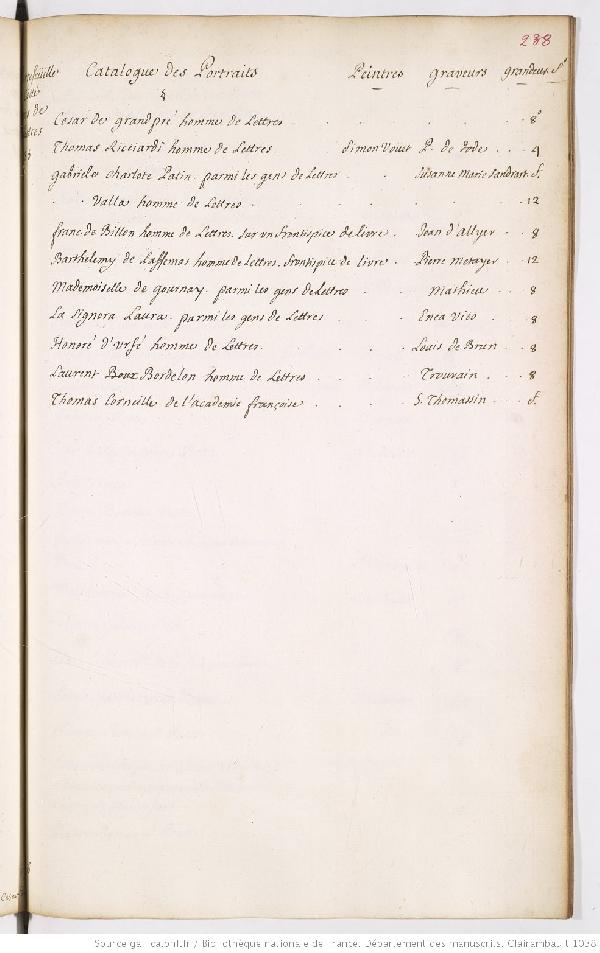 288
Catalogue des Portraits Peintres graveurs grandeurs
Cesar de grandpré homme de Lettres 8°
Thomas Ricciardi homme de Lettres Simon Vouet P. de Jode 4
gabriele charlote Patin parmi les gens de Lettres Susanne Marie Sandrart f.
Valla homme de Lettres 12
franc. de Billon homme de Lettres. sur un frontispice de livre Jean d'Allyer 8
Barthelemy de Laffemas homme de lettres. frontispice de livre Pierre Metayer 12
Mademoiselle de gournay. parmi les gens de Lettres Mathieu 8
La Signora Laura. parmi les gens de Lettres Enea Vico 8
Honoré D'Urfé hommes de Lettres Louis de Brun 8
Laurens Boux Bordelon homme de Lettres Trouvain 8
Thomas Corneille de l'academie françoise S. Thomassin f.
Source gallica.bnf.fr / Bibliothèque nationale de France. Département des manuscrits. Clairambault 1038